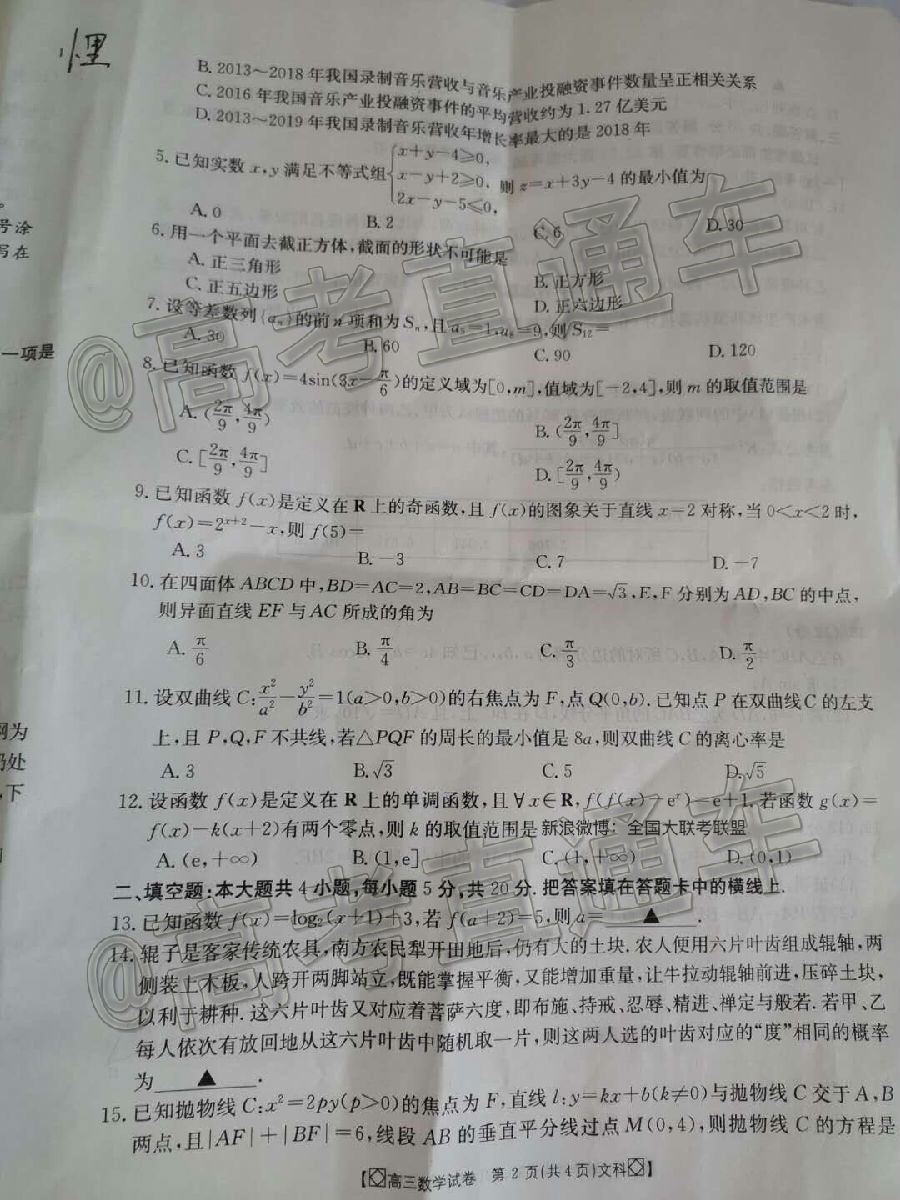 悝
B. 2013～2018 年我国录制音乐营收与音乐产业投融资事件数量呈正相关关系
C. 2016 年我国音乐产业投融资事件的平均营收约为 1.27 亿美元
D. 2013～2019 年我国录制音乐营收年增长率最大的是 2018 年
5. 已知实数 x,y 满足不等式组{x+y-4≥0, x-y+2≥0, 2x-y-5≤0, 则 z=x+3y-4 的最小值为
A. 0 B. 2 C. 6 D. 30
号涂
写在
6. 用一个平面去截正方体,截面的形状不可能是
A. 正三角形 B. 正方形
C. 正五边形 D. 正六边形
7. 设等差数列{aₙ}的前 n 项和为 Sₙ,且 =1, =9,则 S₁₂=
A. 30 B. 60 C. 90 D. 120
一项是
8. 已知函数 f(x)=4sin(3x-π/6)的定义域为[0,m],值域为[-2,4],则 m 的取值范围是
A. (2π/9,4π/9) B. (2π/9,4π/9]
C. [2π/9,4π/9] D. [2π/9,4π/9)
9. 已知函数 f(x)是定义在 R 上的奇函数,且 f(x)的图象关于直线 x=2 对称,当 0<x<2 时,
f(x)=2ˣ⁺²-x,则 f(5)=
A. 3 B. -3 C. 7 D. -7
10. 在四面体 ABCD 中,BD=AC=2,AB=BC=CD=DA=√3,E,F 分别为 AD,BC 的中点,
则异面直线 EF 与 AC 所成的角为
A. π/6 B. π/4 C. π/3 D. π/2
11. 设双曲线 C:x²/a²-y²/b²=1(a>0,b>0)的右焦点为 F,点 Q(0,b). 已知点 P 在双曲线 C 的左支
上,且 P,Q,F 不共线,若△PQF 的周长的最小值是 8a,则双曲线 C 的离心率是
网为
A. 3 B. √3 C. 5 D. √5
处
下
12. 设函数 f(x)是定义在 R 上的单调函数,且∀x∈R, f(f(x)-eˣ)=e+1. 若函数 g(x)=
f(x)-k(x+2)有两个零点,则 k 的取值范围是 新浪微博：全国大联考联盟
A. (e,+∞) B. (1,e] C. (1,+∞) D. (0,1)
二、填空题:本大题共 4 小题,每小题 5 分,共 20 分. 把答案填在答题卡中的横线上.
13. 已知函数 f(x)=log₂(x+1)+3,若 f(a+2)=5,则 a= ▲ .
14. 辊子是客家传统农具,南方农民犁开田地后,仍有大的土块. 农人便用六片叶齿组成辊轴,两
侧装上木板,人跨开两脚站立,既能掌握平衡,又能增加重量,让牛拉动辊轴前进,压碎土块,
以利于耕种. 这六片叶齿又对应着菩萨六度,即布施、持戒、忍辱、精进、禅定与般若. 若甲、乙
每人依次有放回地从这六片叶齿中随机取一片,则这两人选的叶齿对应的“度”相同的概率
为 ▲ .
15. 已知抛物线 C:x²=2py(p>0)的焦点为 F,直线 l:y=kx+b(k≠0)与抛物线 C 交于 A,B
两点,且|AF|+|BF|=6,线段 AB 的垂直平分线过点 M(0,4),则抛物线 C 的方程是
【高三数学试卷 第 2 页(共 4 页)文科】
@高考直通车
@高考直通车